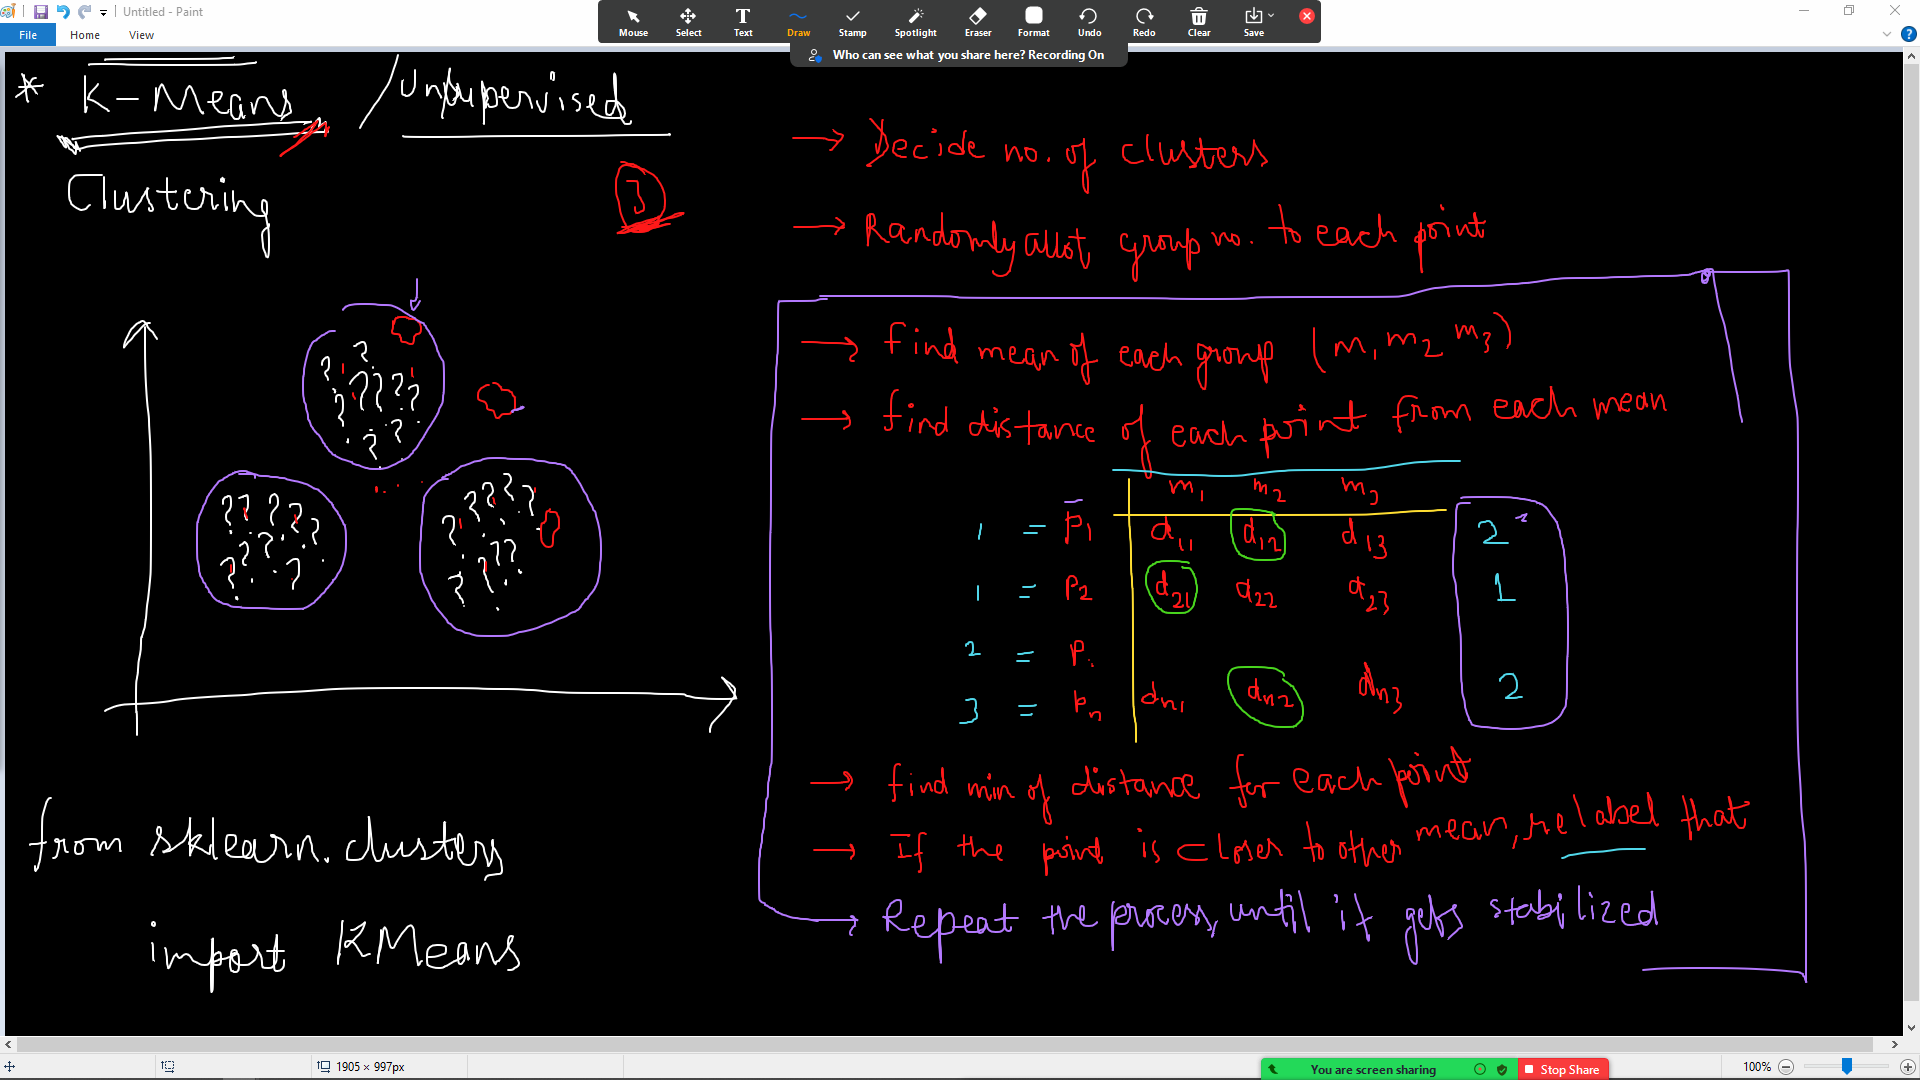 Untitled - Paint
File Home View
Mouse Select Text Draw Stamp Spotlight Eraser Format Undo Redo Clear Save
Who can see what you share here? Recording On
* K-Means / Unsupervised
Clustering
3
from sklearn.clusters
import KMeans
→ Decide no. of clusters
→ Randomly allot group no. to each point
→ find mean of each group (m1 m2 m3)
→ find distance of each point from each mean
m1 m2 m3
1 = P1 d11 d12 d13 2
1 = P2 d21 d22 d23 1
2 = P:
3 = Pn dn1 dn2 dn3 2
→ find min of distance for each point
→ If the point is closer to other mean, relabel that
→ Repeat the process, until it gets stabilized
1905 × 997px
You are screen sharing
Stop Share
100%